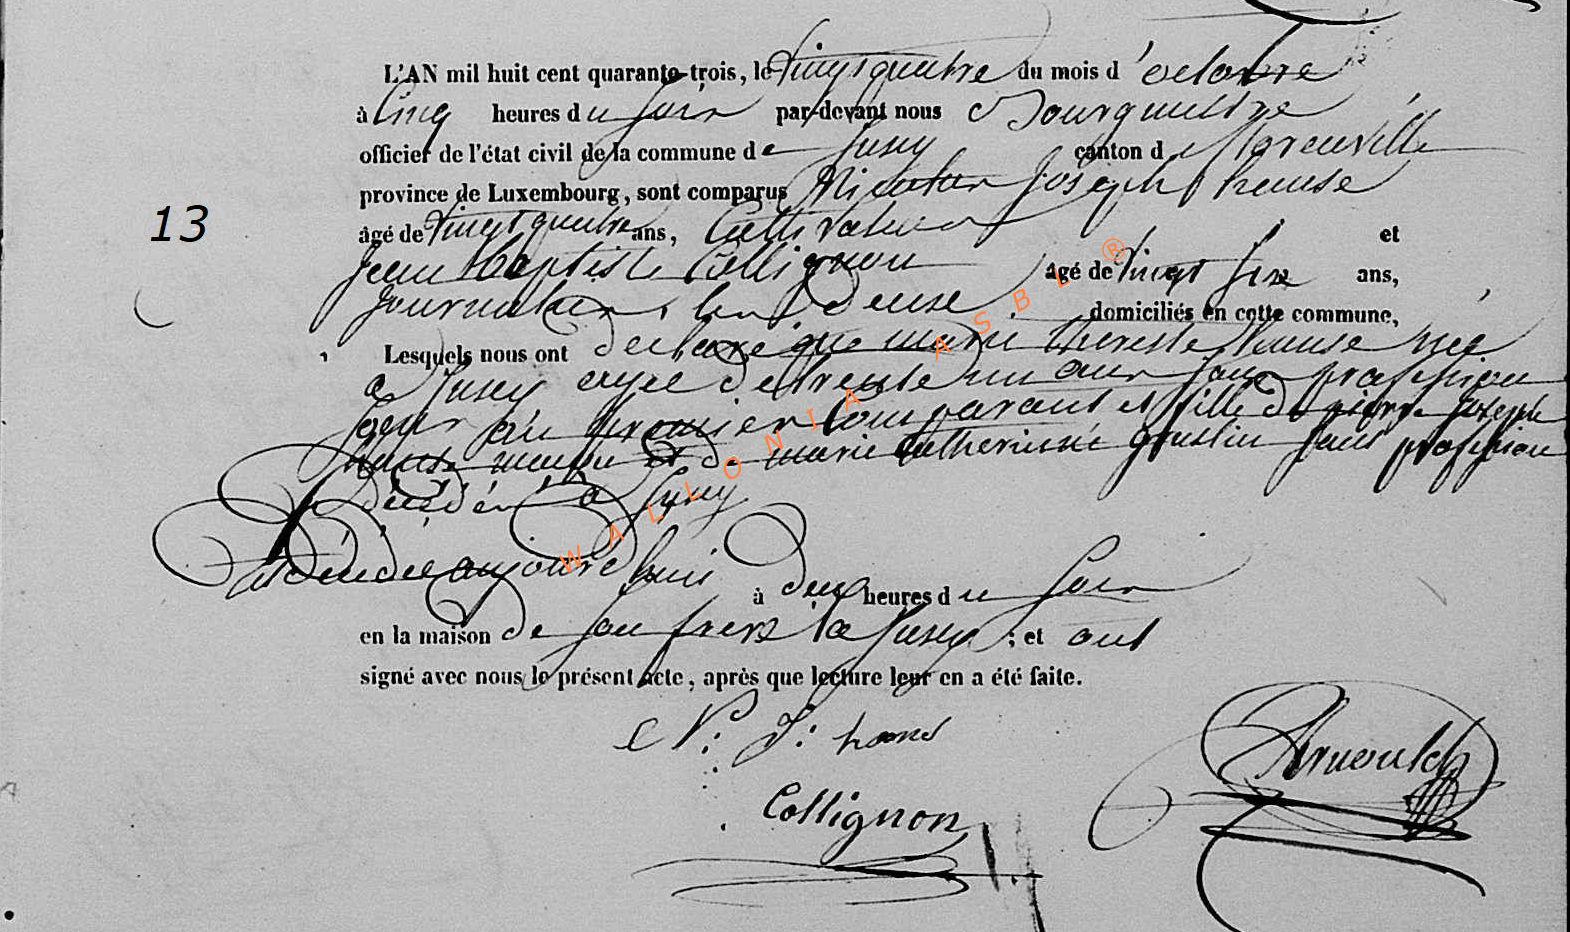 L'AN mil huit cent quarante-trois, le vingt quatre du mois d'octobre
13
à cinq heures du soir par-devant nous Bourguestre
officier de l'état civil de la commune de Jusey canton d
province de Luxembourg, sont comparus Nicolas Joseph hause
âgé de vingt quatre ans, Cultivateur et
Jean Baptiste Collignon âgé de vingt six ans,
journalier, les deuse domiciliés en cette commune,
Lesquels nous ont declaré que marie thereste hause née
a Jusey agée de trente un ans sans profession
soeur du premier Comparant et fille de pierre Joseph
hause et de marie Catherine sans profession
décédés a Jusey
est décédée aujourd huis à deux heures du soir
en la maison de son frere a Jusey ; et ont
signé avec nous le présent acte, après que lecture leur en a été faite.
N: J: hause
Arnould
Collignon
WALLONIA ASBL ®